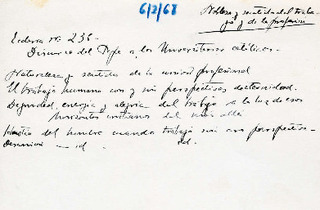 6/2/68
Nobleza y sentido del traba-
jo y de la profesión
Ecclesia nº 236.-
Discurso del Papa a los Universitarios católicos.-
Naturaleza y sentido de la unidad profesional
El trabajo humano con y sin perspectivas de eternidad.
Dignidad, energía y alegría del trabajo a la luz de esos
horizontes cristianos del más allá
del hombre cuando trabaja sin esa perspectiva.-
id. id.